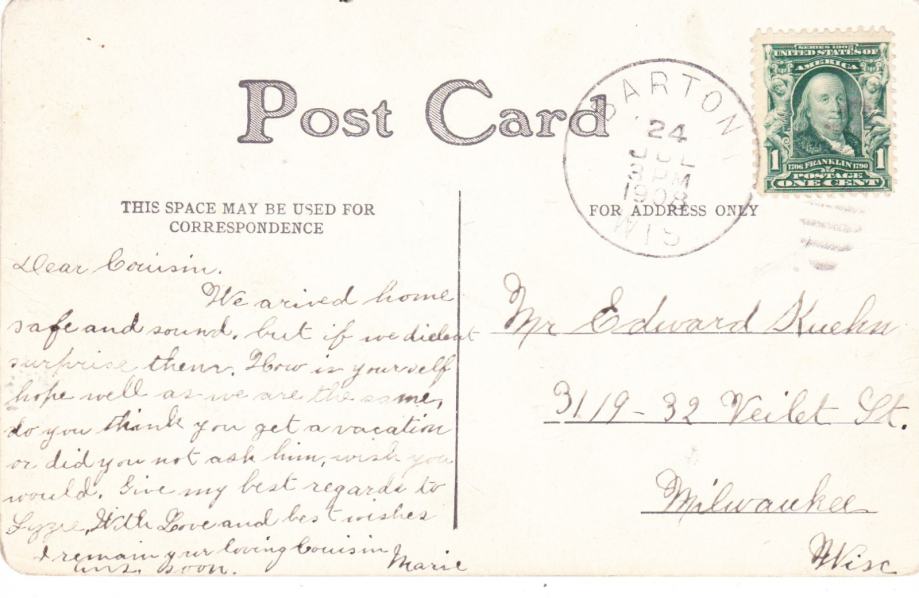 Post Card
BARTON
24
JUL
3 PM
1908
WIS
SERIES 1902
UNITED STATES OF
AMERICA
1 1706 FRANKLIN 1790 1
POSTAGE
ONE CENT
THIS SPACE MAY BE USED FOR
CORRESPONDENCE
FOR ADDRESS ONLY
Dear Couisin.
We arived home
safe and sound. but if we dident
surprise them. How is yourself
hope well as we are the same,
do you think you get a vacation
or did you not ask him, wish you
would. Give my best regards to
Lyzzie, With Love and best wishes
I remain your loving Couisin
ans. soon. Marie
Mr Edward Kuehn
3119-32 Veilet St.
Milwaukee
Wisc